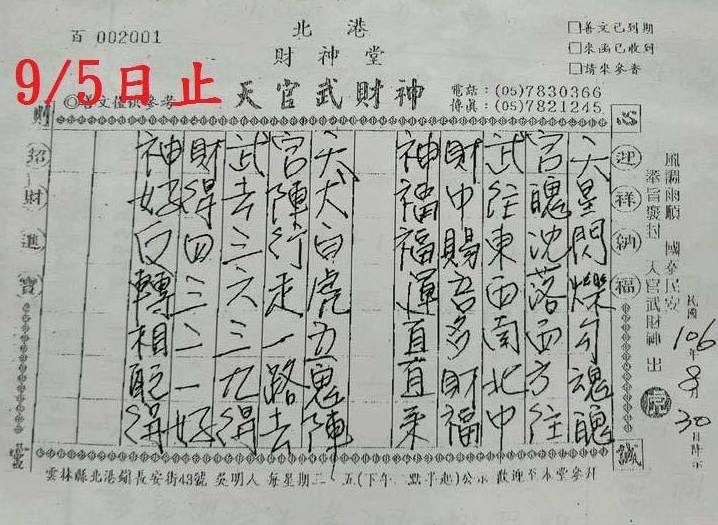 百 002001
北港
財神堂
天官武財神
9/5日止
◎善文僅供參考
□善文已到期
□來函已收到
□請來參香
電話:(05)7830366
傳真:(05)7821245
風調雨順 國泰民安
奉旨發封 天官武財神 出
民國106年8月30日
心
迎祥納福
誠
天星閃爍勾魂醜
宮醜沈落西方往
武往東西南北中
財中賜吾多財福
神福福運直直來
天犬白虎五鬼陣
宮陣行走一路去
武去三六三九得
財得四三二一好
神好回轉相配得
則
招財進寶
靈
雲林縣北港鎮長安街43號 吳明人 每星期二 五(下午二點半起)公示 歡迎至本堂參拜